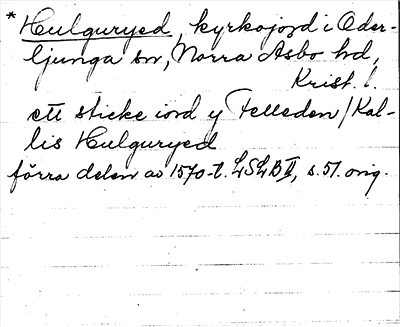 * Hulguryed, kyrkojord i Oder-
ljunga sn, Norra Åsbo hd,
Krist. l.
ett sticke iord y Felleden / Kal-
lis Hulguryed
förra delen av 1570-t. LSLB II, s. 51. orig.